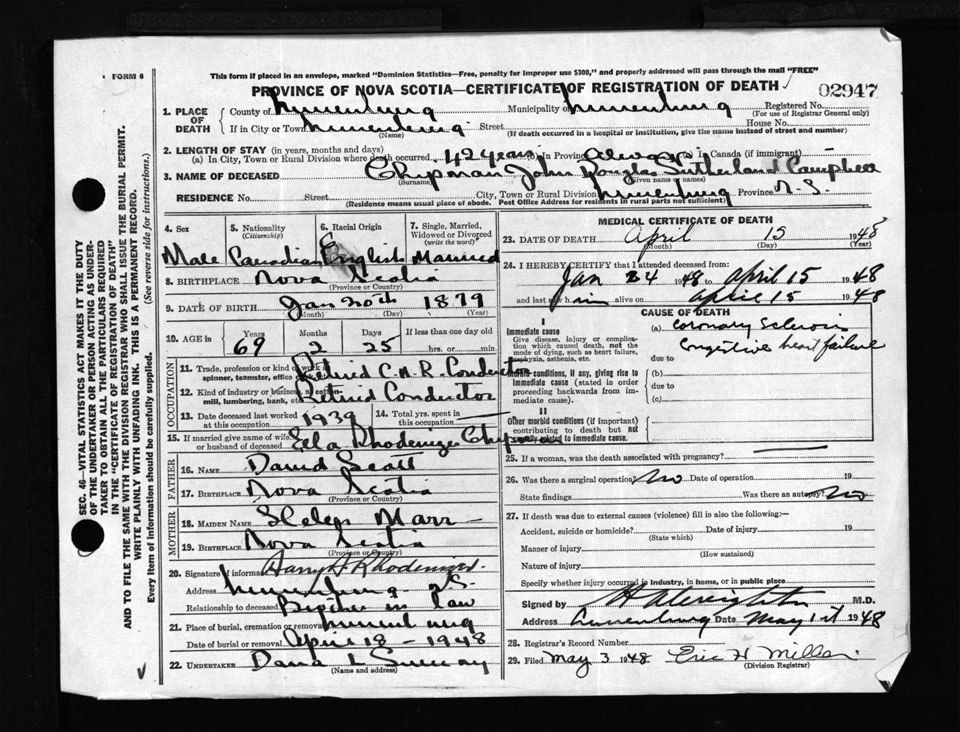 FORM 6
This form if placed in an envelope, marked "Dominion Statistics—Free, penalty for improper use $300," and properly addressed will pass through the mail "FREE"
PROVINCE OF NOVA SCOTIA—CERTIFICATE OF REGISTRATION OF DEATH
02947
1. PLACE OF DEATH County of Lunenburg Municipality of Lunenburg Registered No.
(For use of Registrar General only)
If in City or Town Lunenburg Street House No.
(Name) (If death occurred in a hospital or institution, give the name instead of street and number)
2. LENGTH OF STAY (in years, months and days)
(a) In City, Town or Rural Division where death occurred 42 years (b) In Province always (c) In Canada (if immigrant)
3. NAME OF DECEASED Chipman John Douglas Sutherland Campbell
(Surname) (Given name or names)
RESIDENCE No. Street City, Town or Rural Division Lunenburg Province N.S.
(Residence means usual place of abode. Post Office Address for residents in rural parts not sufficient)
4. Sex 5. Nationality (Citizenship) 6. Racial Origin 7. Single, Married, Widowed or Divorced (write the word)
Male Canadian English Married
8. BIRTHPLACE Nova Scotia
(Province or Country)
9. DATE OF BIRTH Jan 20th 1879
(Month) (Day) (Year)
10. AGE in Years Months Days If less than one day old
69 2 25 hrs. or min.
OCCUPATION
11. Trade, profession or kind of work Retired C.N.R. Conductor
spinner, teamster, office
12. Kind of industry or business Retired Conductor
mill, lumbering, bank, etc.
13. Date deceased last worked at this occupation 1939 14. Total yrs. spent in this occupation
15. If married give name of wife or husband of deceased Rhodenizer Chipman
FATHER
16. NAME David Scott
17. BIRTHPLACE Nova Scotia
(Province or Country)
MOTHER
18. MAIDEN NAME Helen Marr
19. BIRTHPLACE Nova Scotia
(Province or Country)
20. Signature of informant Harry Rhodenizer
Address Lunenburg N.S.
Relationship to deceased Brother in law
21. Place of burial, cremation or removal Lunenburg
Date of burial or removal April 18 - 1948
22. UNDERTAKER Dana L Sweeny
(Name and address)
MEDICAL CERTIFICATE OF DEATH
23. DATE OF DEATH April 15 1948
(Month) (Day) (Year)
24. I HEREBY CERTIFY that I attended deceased from:
Jan 24 1948 to April 15 1948
and last saw him alive on April 15 1948
CAUSE OF DEATH
I
Immediate cause
Give disease, injury or complication which caused death, not the mode of dying, such as heart failure, asphyxia, asthenia, etc.
(a) Coronary Sclerosis
Congestive heart failure
due to
Morbid conditions, if any, giving rise to immediate cause (stated in order proceeding backwards from immediate cause).
(b)
due to
(c)
II
Other morbid conditions (if important) contributing to death but not causally related to immediate cause.
25. If a woman, was the death associated with pregnancy?
26. Was there a surgical operation? No Date of operation 19
State findings Was there an autopsy? No
27. If death was due to external causes (violence) fill in also the following:—
Accident, suicide or homicide? Date of injury 19
(State which)
Manner of injury
(How sustained)
Nature of injury
Specify whether injury occurred in industry, in home, or in public place
Signed by H A Creighton M.D.
Address Lunenburg Date May 1st 1948
28. Registrar's Record Number
29. Filed May 3 1948 Eric H Miller
(Division Registrar)
SEC. 46—VITAL STATISTICS ACT MAKES IT THE DUTY
OF THE UNDERTAKER OR PERSON ACTING AS UNDERTAKER
TO OBTAIN ALL THE PARTICULARS REQUIRED
IN THE "CERTIFICATE OF REGISTRATION OF DEATH"
AND TO FILE THE SAME WITH THE DIVISION REGISTRAR WHO SHALL ISSUE THE BURIAL PERMIT.
WRITE PLAINLY WITH UNFADING INK. THIS IS A PERMANENT RECORD.
Every item of information should be carefully supplied. (See reverse side for instructions.)